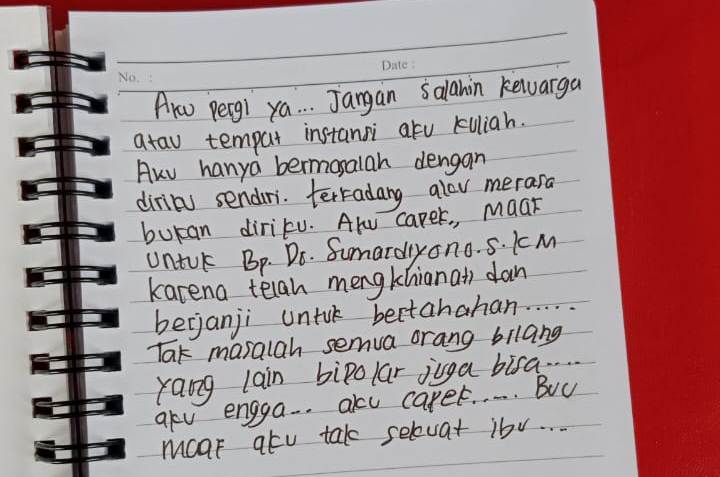 No. :
Date :
Aku pergi ya... Jangan salahin keluarga
atau tempat instansi aku kuliah.
Aku hanya bermasalah dengan
diriku sendiri. terkadang aku merasa
bukan diriku. Aku capek,, Maaf
untuk Bp. Dr. Sumardiyono.S.KM
karena telah mengkhianati dan
berjanji untuk bertahahan.....
Tak masalah semua orang bilang
yang lain bipolar juga bisa....
aku engga... aku capek..... Buu
maaf aku tak sekuat ibu...